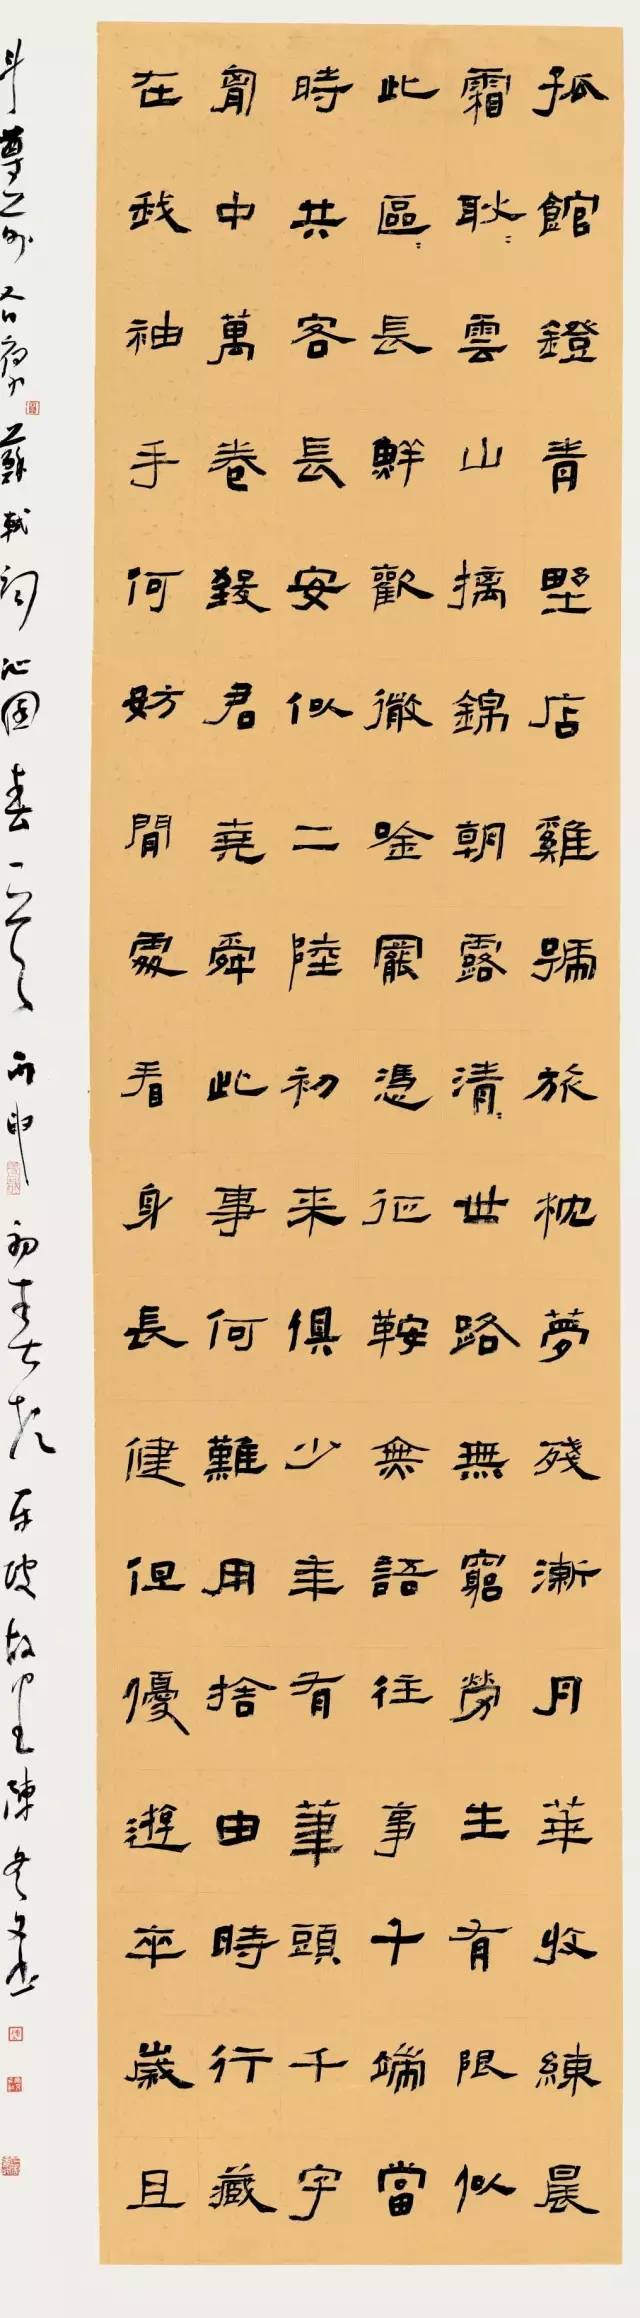 孤館鐙青墅店雞號旅枕夢殘漸月華收練晨
霜耿〻雲山摛錦朝露清〻世路無窮勞生有限似
此區〻長鮮歡微唫罷憑征鞍無語往事千端當
時共客長安似二陸初来俱少年有筆頭千字
胷中萬卷致君堯舜此事何難用捨由時行藏
在我袖手何妨閒處看身長健但優遊卒歲且
斗尊前 蘇軾詞沁園春一首 丙申初春 東坡故里陳